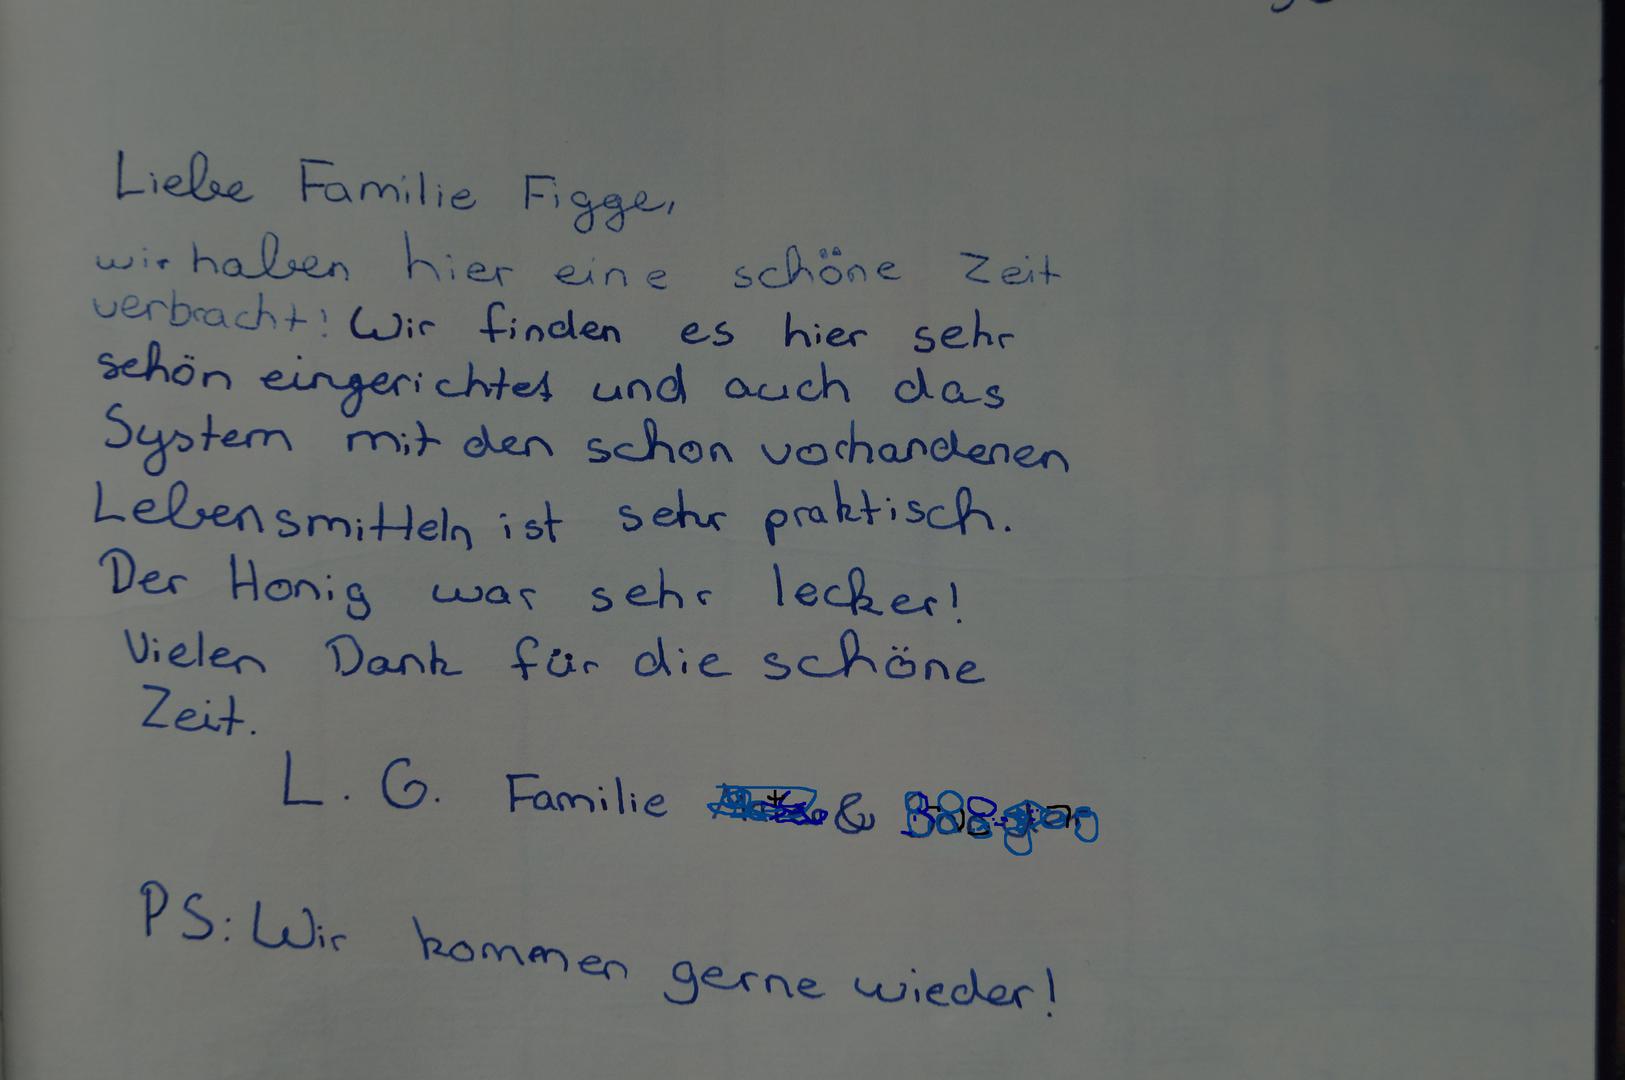 Liebe Familie Figge,
wir haben hier eine schöne Zeit
verbracht! Wir finden es hier sehr
schön eingerichtet und auch das
System mit den schon vorhandenen
Lebensmitteln ist sehr praktisch.
Der Honig war sehr lecker!
Vielen Dank für die schöne
Zeit.
L. G. Familie &
PS: Wir kommen gerne wieder!